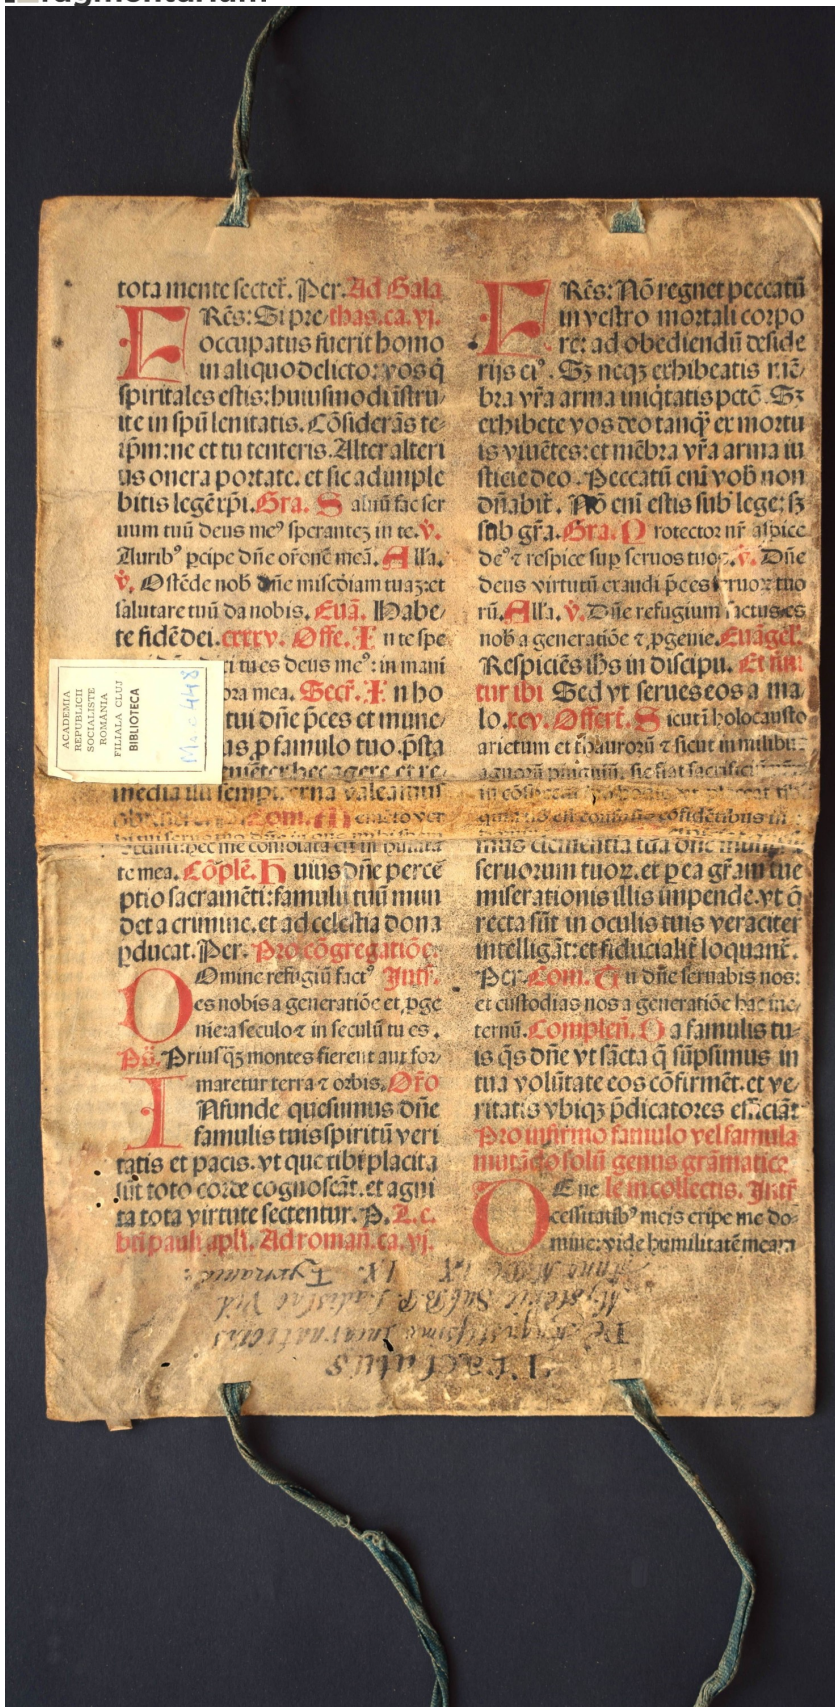 Fragmentarium
tota mente sectet̃. Per. Ad Gala
ERẽs: Si pre thas. ca. vj.
occupatus fuerit homo
in aliquo delicto: vos q̃
spirituales estis: huiusmodi ĩstru
ite in spũ lenitatis. Cõsiderãs te
ip̃m: ne et tu tenteris. Alter alteri
us onera portate. et sic adimple
bitis legẽ xp̃i. Gra. Saluũ fac ser
uum tuũ deus meꝰ sperantez in te. v̇.
Auribꝰ ꝑcipe dñe oꝛonẽ meã. Alla.
v̇. Ostẽde nob dñe miscõiam tuaz: et
salutare tuũ da nobis. Euã. Habe
te fidẽ dei. cxxxv. Offe. In te spe
ri tu es deus meꝰ: in mani
ora mea. Secr̃. In ho
tui dñe p̃ces et mune
as ꝓ famulo tuo. p̃sta
hec agere et re
media illi semp
Com. Memento ver
bi tui seruo tuo dñe in quo mihi spem
hec me consolata est in humilita
te mea. Cõplẽ. Huius dñe perce
ptio sacramẽti: famulũ tuũ mun
det a crimine. et ad celestia dona
ꝑducat. Per. Pro cõgregatiõe.
Domine refugiũ factꝰ Intr̃.
es nobis a generatiõe et ꝓge
nie: a seculo ⁊ in seculũ tu es.
Ps̃. Priusq̃ꝫ montes fierent aut for
maretur terra ⁊ orbis. Oꝛ̃o
INfunde quesumus dñe
famulis tuis spiritũ veri
tatis et pacis. vt que tibi placita
sũt toto corde cognoscãt. et agni
ta tota virtute sectentur. P. L. e.
bt̃i pauli apl̃i. Ad roman̄. ca. vj.
ERẽs: Nõ regnet peccatũ
in vestro mortali corpo
re: ad obediendũ deside
rijs eiꝰ. Sꝫ neqꝫ exhibeatis mẽ
bra vr̃a arma iniq̃tatis pctõ. Sꝫ
exhibete vos deo tanq̃ꝫ ex mortu
is viuẽtes: et mẽbra vr̃a arma iu
sticie deo. Peccatũ eni vob non
dñabit̃. Nõ eni estis sub lege: sꝫ
sub gr̃a. Gra. Protector nr̃ aspice
deꝰ ⁊ respice sup seruos tuos. v̇. Dñe
deus virtutũ exaudi p̃ces seruoꝝ tuo
rũ. Alla. v̇. Dñe refugium factus es
nob a generatiõe ⁊ ꝓgenie. Euãgel̃.
Respiciẽs ihs in discipu. Et niň
tur ibi Sed vt serues eos a ma
lo. xcv. Offert. Sicut ĩ holocausto
arietum et thauroꝝũ ⁊ sicut in milibu
agnorũ pinguiũ: sic fiat sacrificiũ
placeat tibi
quia nõ est confusio cõfidẽtibus in
clementia tua dñe
seruorum tuoꝝ. et ꝑ ea gr̃am tue
miserationis illis impende. vt q̃
recta sũt in oculis tuis veraciter
intelligãt: et fiducialit̃ loquant̃.
Per. Com. Tu dñe seruabis nos:
et custodias nos a generatiõe hac ĩne
ternũ. Compleñ. Da famulis tu
is q̃s dñe vt sãcta q̃ sũpsimus in
tua volũtate eos cõfirmẽt. et ve
ritatis vbiqꝫ p̃dicatores efficiãt
Pro infirmo famulo vel famula
mutãdo solũ genus grãmatice
DE ne le in collectis. Intr̃
cessitatibꝰ meis eripe me do
mine: vide humilitatẽ meam
Tractatus
De Augustissimo Incarnationis
Mysterio Sub R. P. Ladislao Vid
Anno
ACADEMIA
REPUBLICII
SOCIALISTE
ROMÂNIA
FILIALA CLUJ
BIBLIOTECA